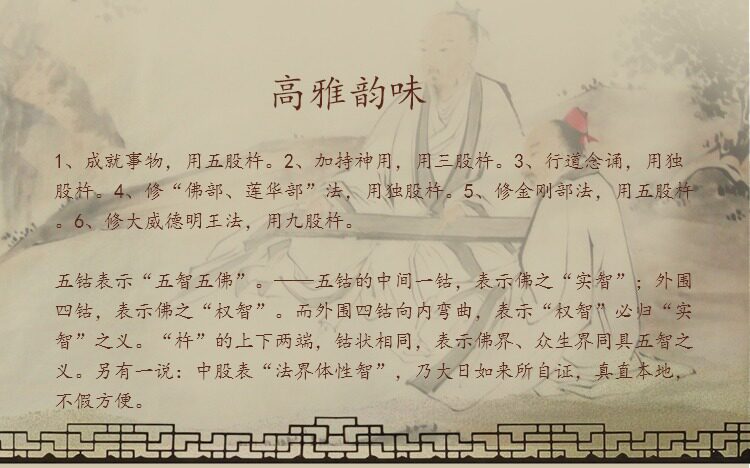 高雅韵味
1、成就事物，用五股杵。2、加持神用，用三股杵。3、行道念诵，用独
股杵。4、修“佛部、莲华部”法，用独股杵。5、修金刚部法，用五股杵
。6、修大威德明王法，用九股杵。
五钴表示“五智五佛”。——五钴的中间一钴，表示佛之“实智”；外围
四钴，表示佛之“权智”。而外围四钴向内弯曲，表示“权智”必归“实
智”之义。“杵”的上下两端，钴状相同，表示佛界、众生界同具五智之
义。另有一说：中股表“法界体性智”，乃大日如来所自证，真直本地，
不假方便。